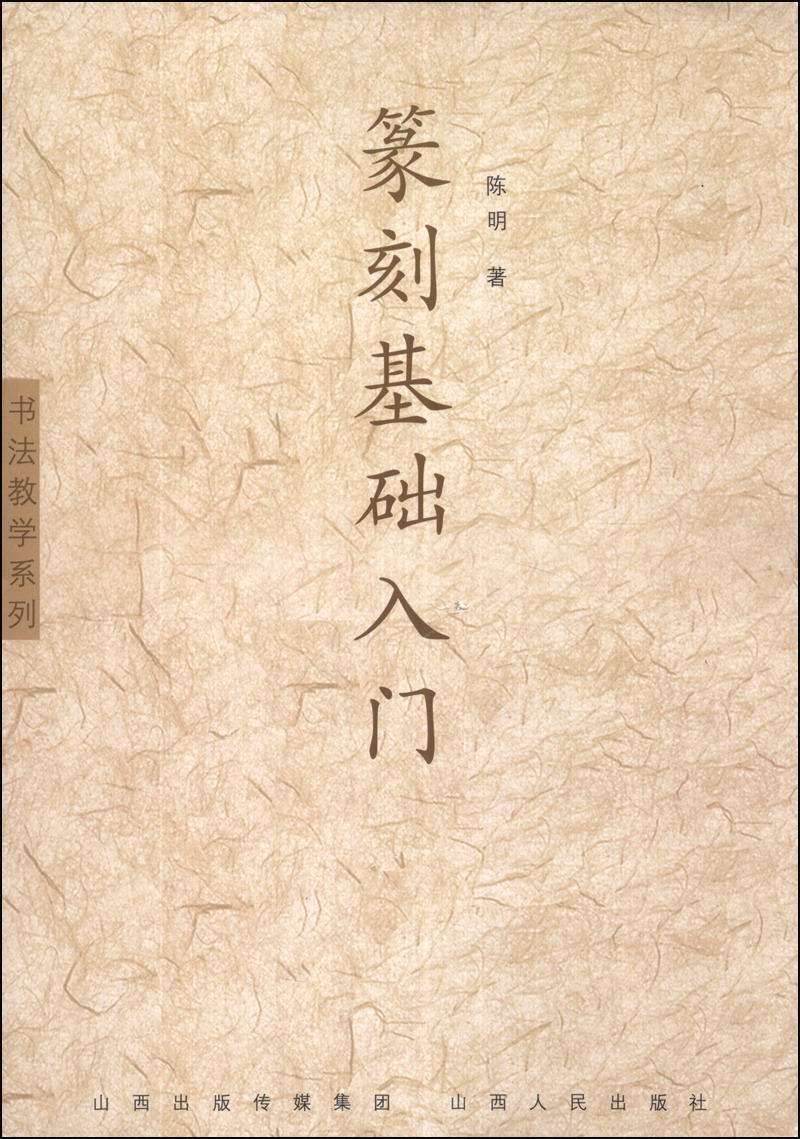 篆刻基础入门
陈明 著
书法教学系列
山西出版传媒集团 山西人民出版社